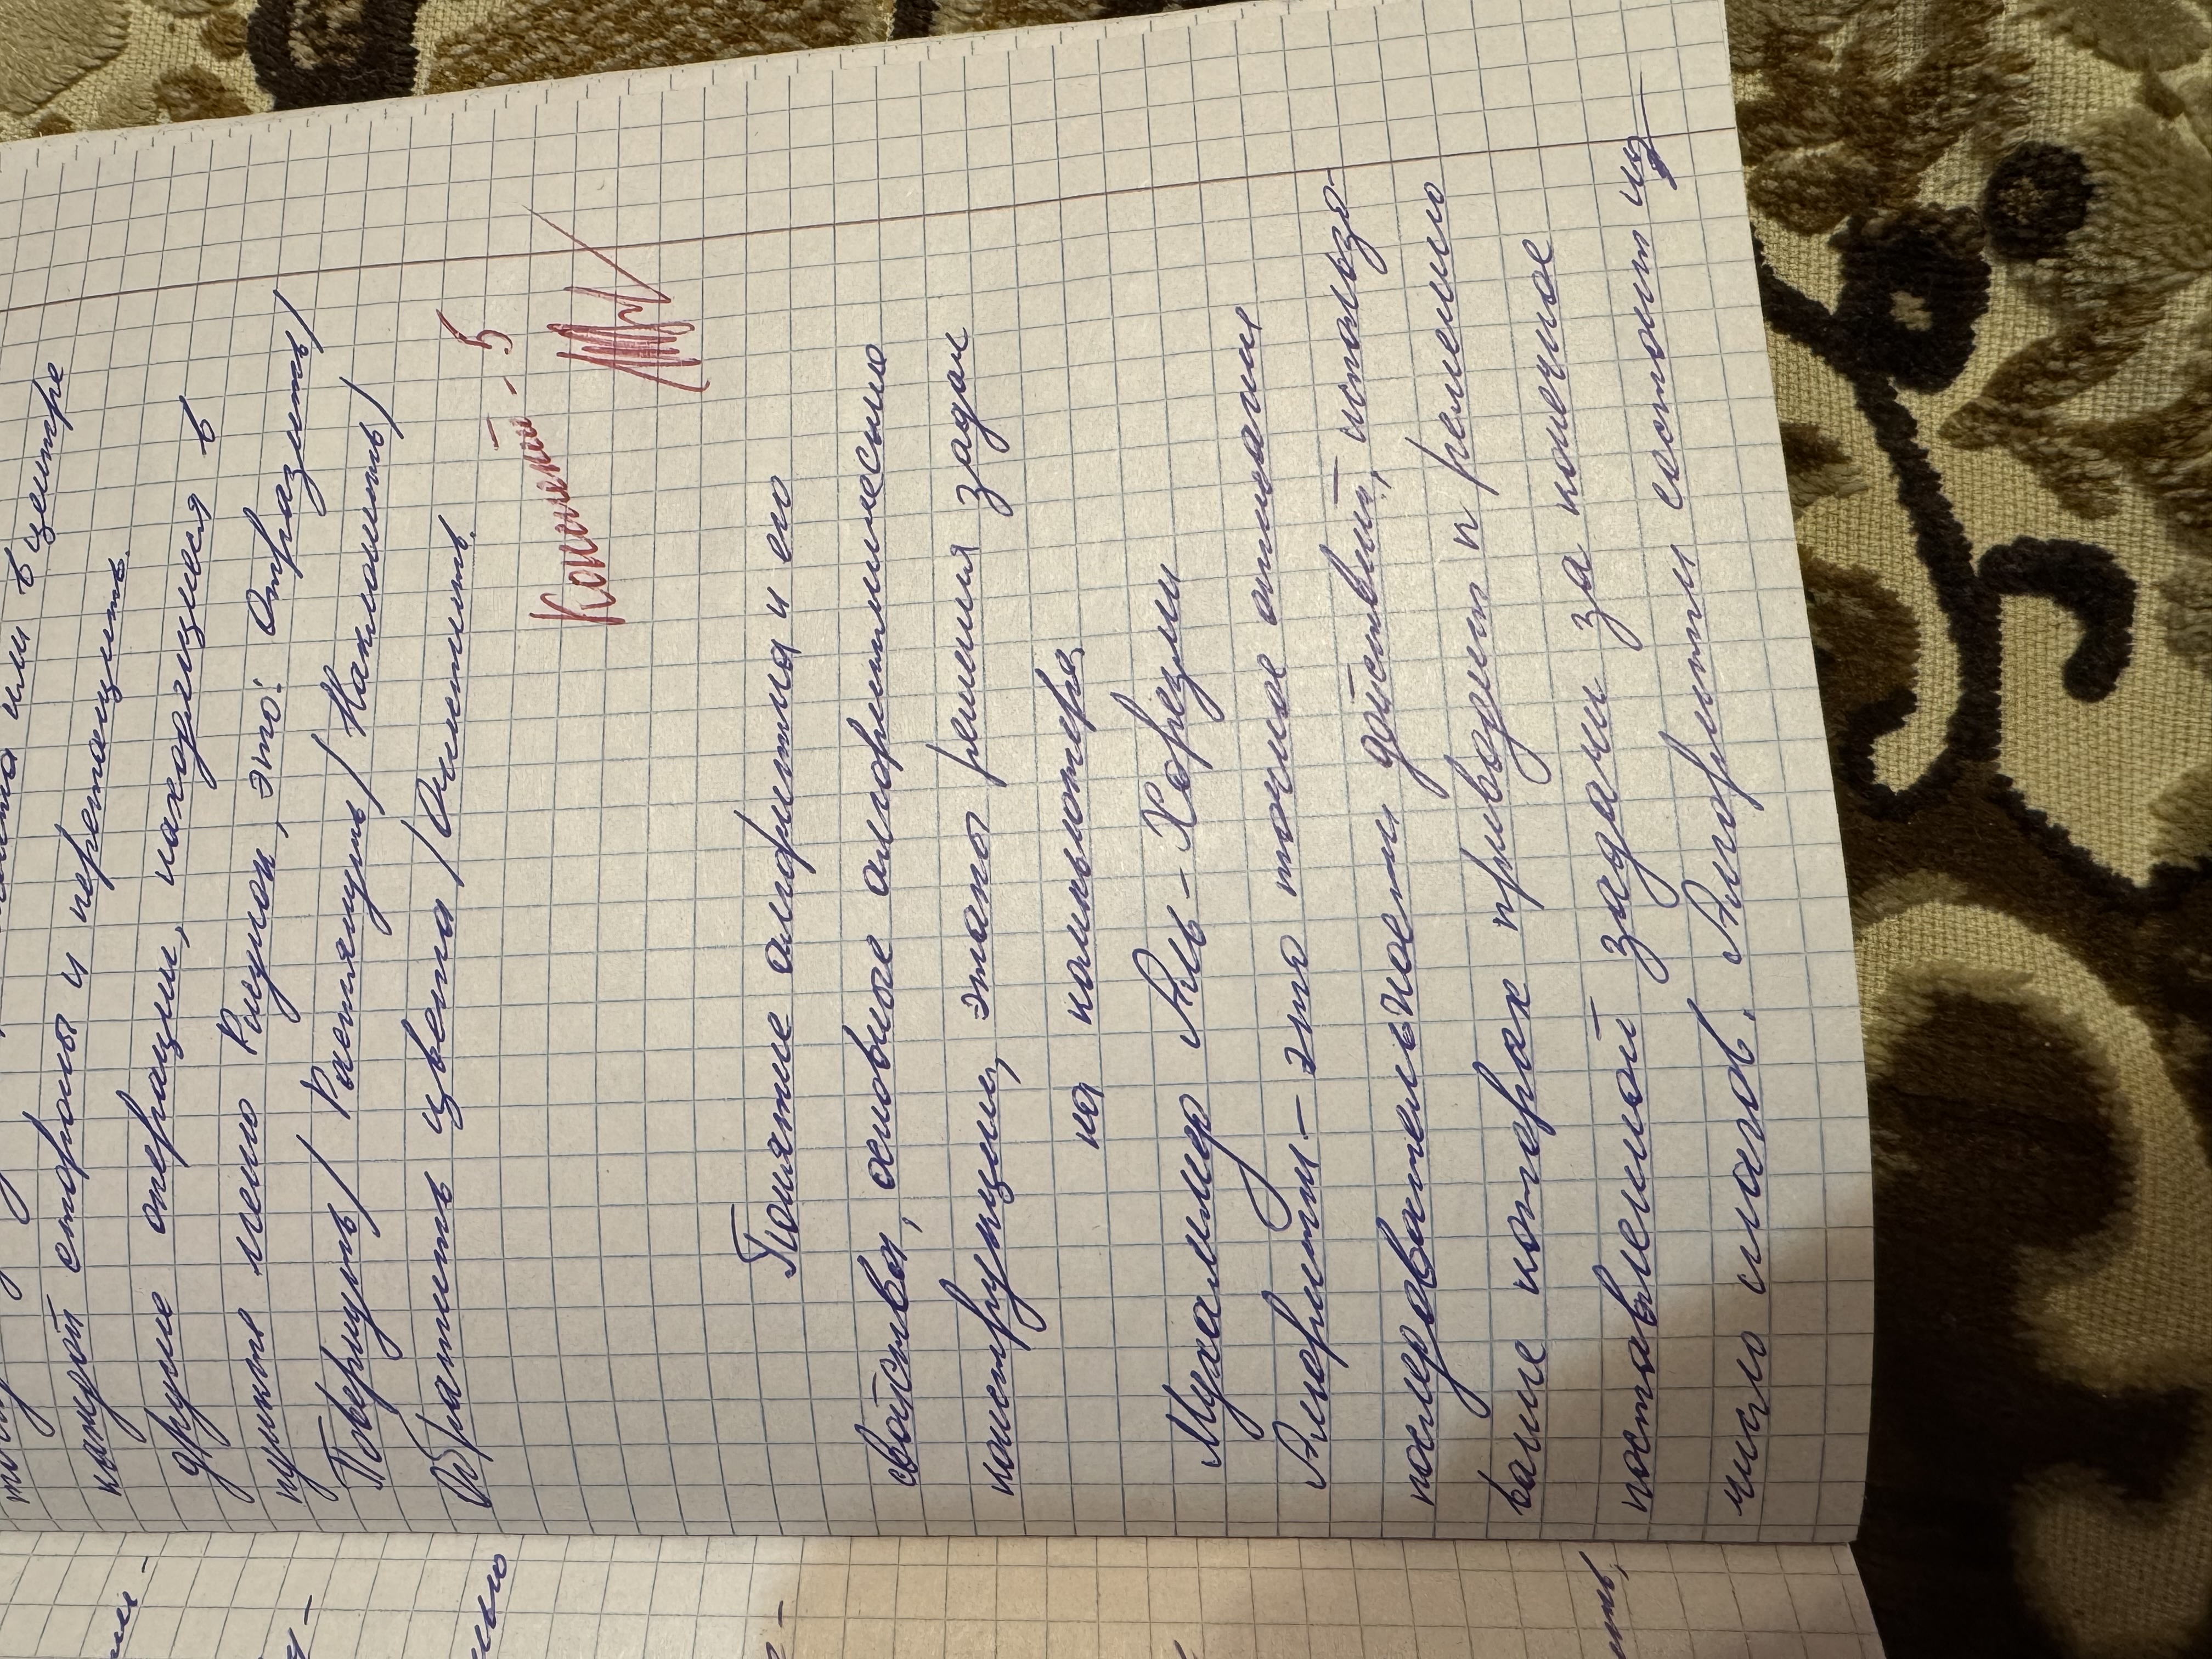 или в центре
каждой стороны и перетащить.
другие операции, находящиеся в
пункте меню Рисунок, это: Отразить/
Повернуть/ Растянуть/ Наклонить/
Обратить цвета / Очистить.
Конспект - 5
Понятие алгоритма и его
свойства, основные алгоритмические
конструкции, этапы решения задач
на компьютере
Мухаммед Аль - Хорезми
Алгоритм - это точное описание
последовательности действий, использо-
вание которых приводит к решению
поставленной задачи за конечное
число шагов. Алгоритм состоит из